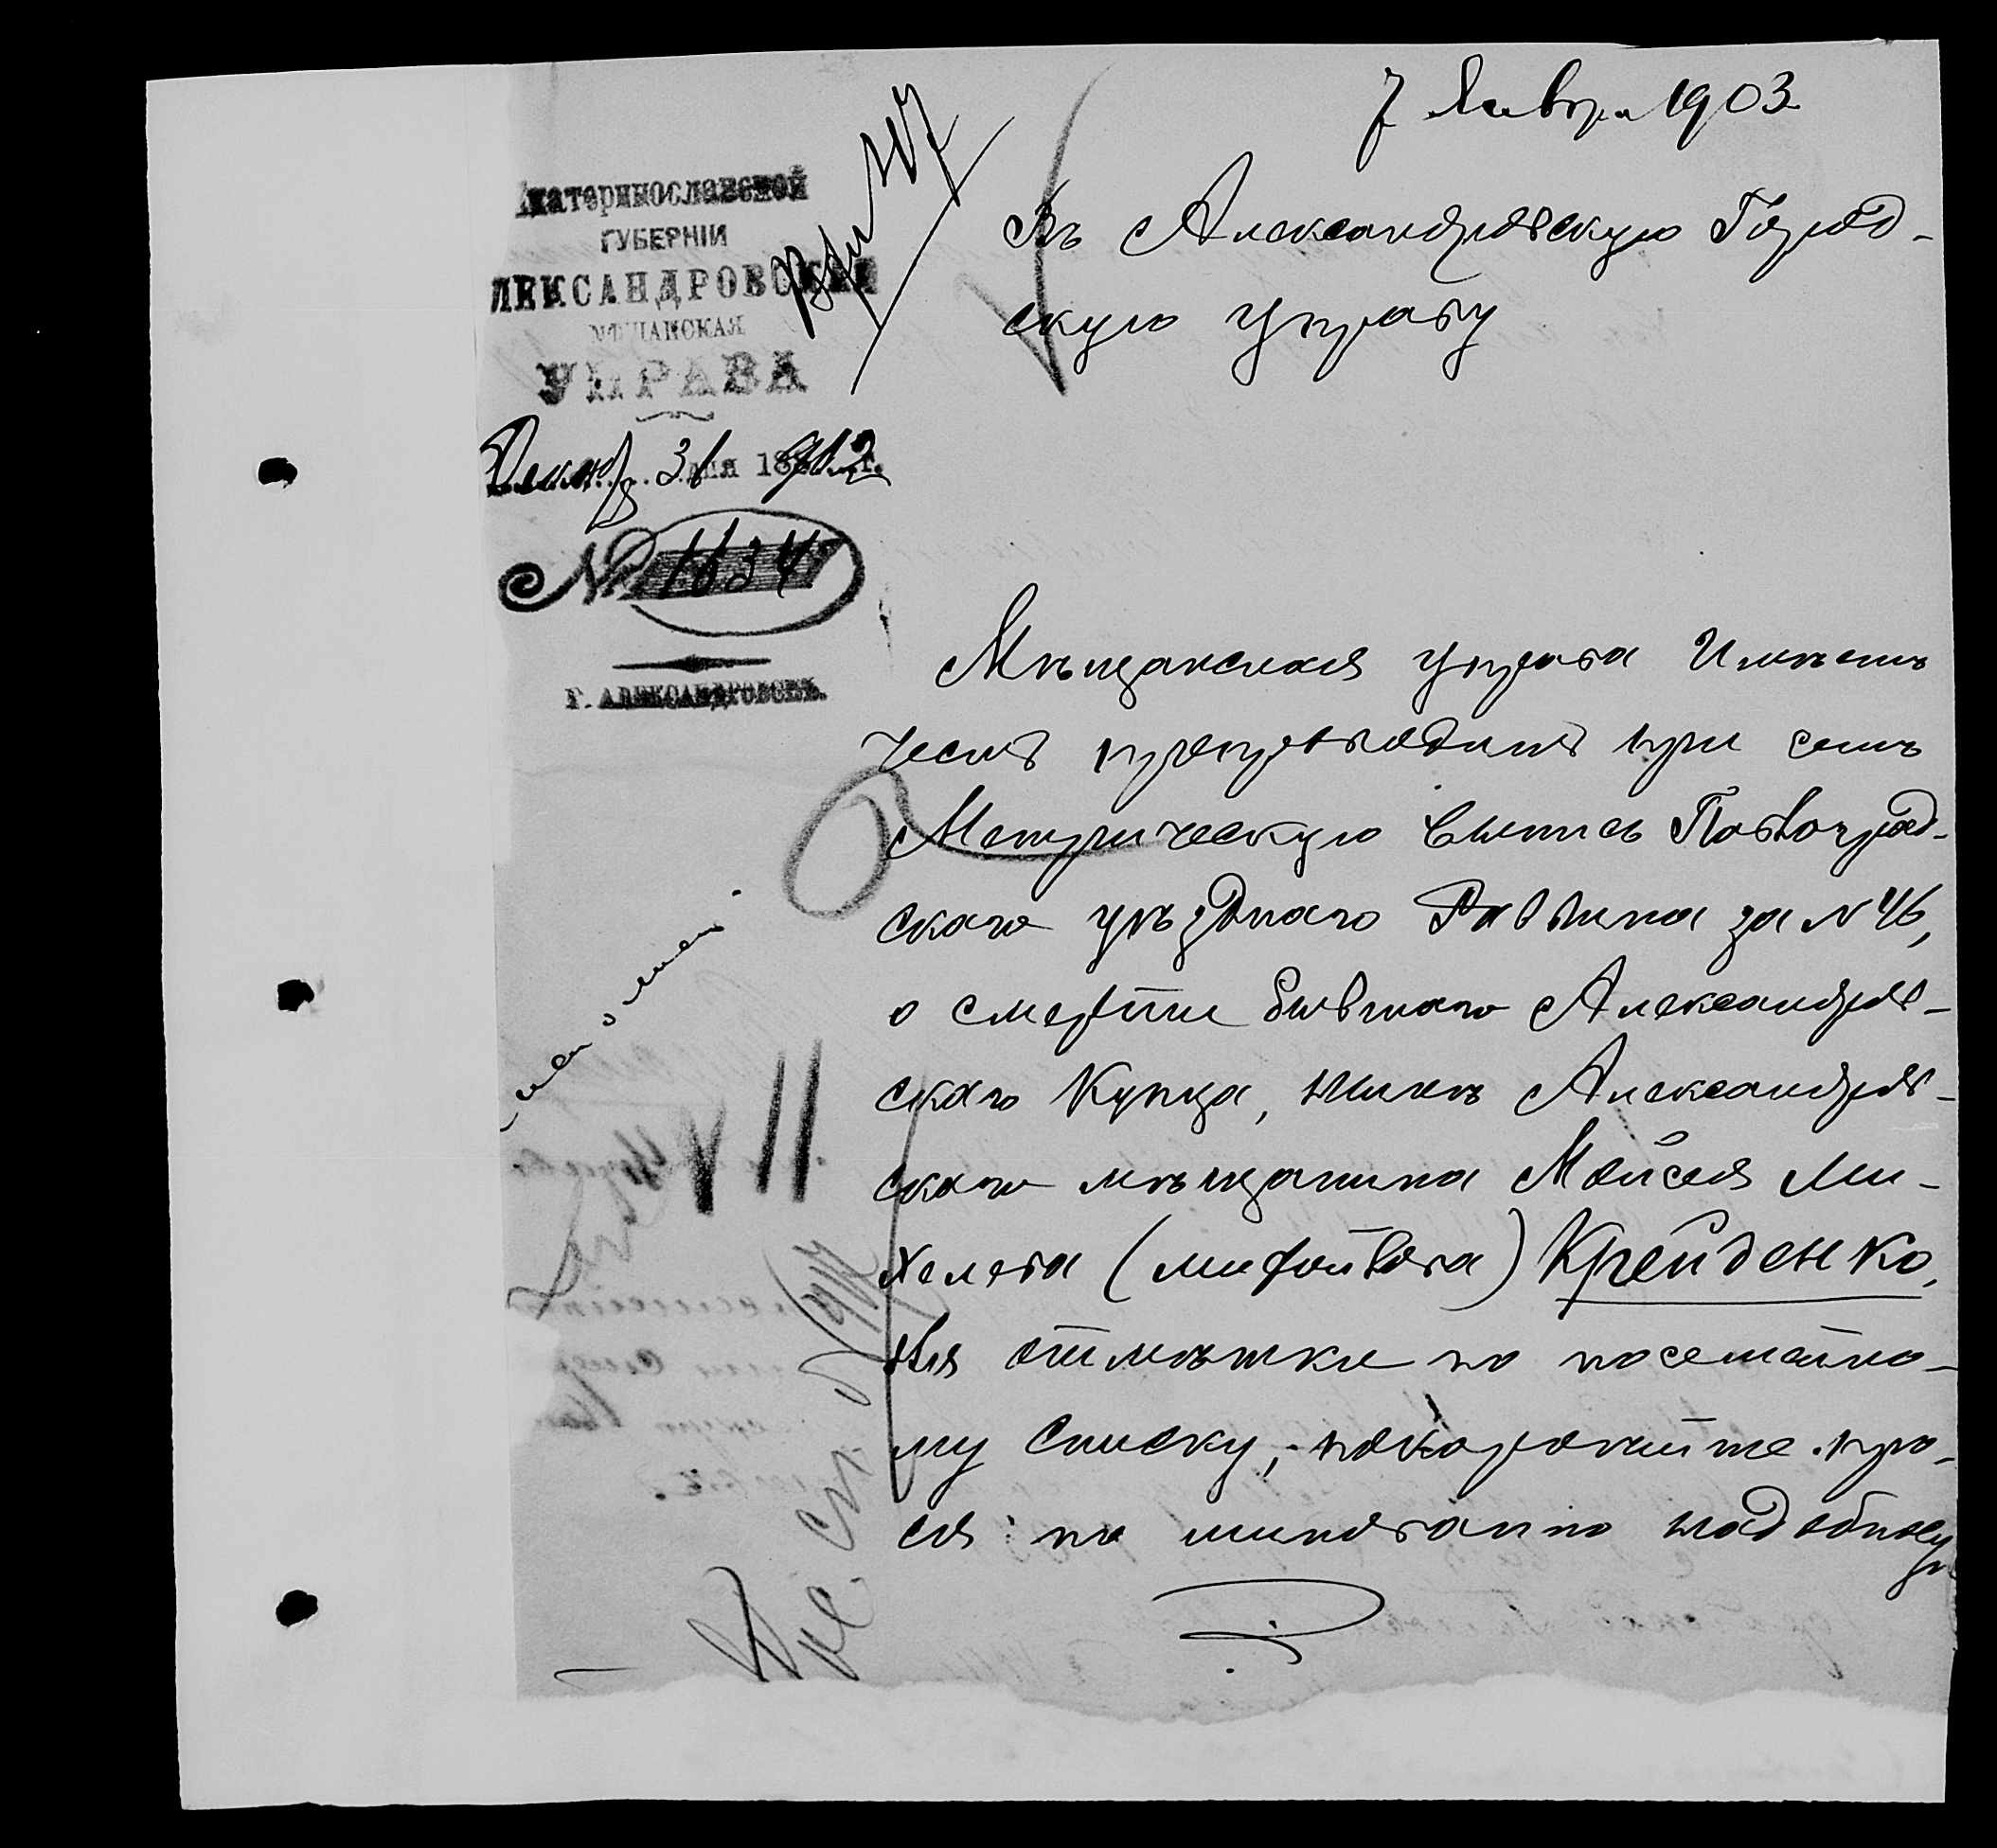 7 Января 1903
Екатеринославской
ГУБЕРНІИ
АЛЕКСАНДРОВСКАЯ
МѢЩАНСКАЯ
УПРАВА
Декабр 31 дня 1902 г.
№ 1634
Г. АЛЕКСАНДРОВСКЪ.
Въ Александровскую Город-
скую управу
Мѣщанская управа Имѣетъ
честь препроводить при семъ
Метрическую выпись Павлоград-
скаго уѣзднаго Раввина за N 46,
о смерти бывшаго Александров-
скаго Купца, нынѣ Александров-
скаго мѣщанина Мойсея Ми-
хелева (Шифойвова) Крейденко,
для отмѣтки по посемейно-
му списку, покорнѣйше про-
ся по миновании надобнос